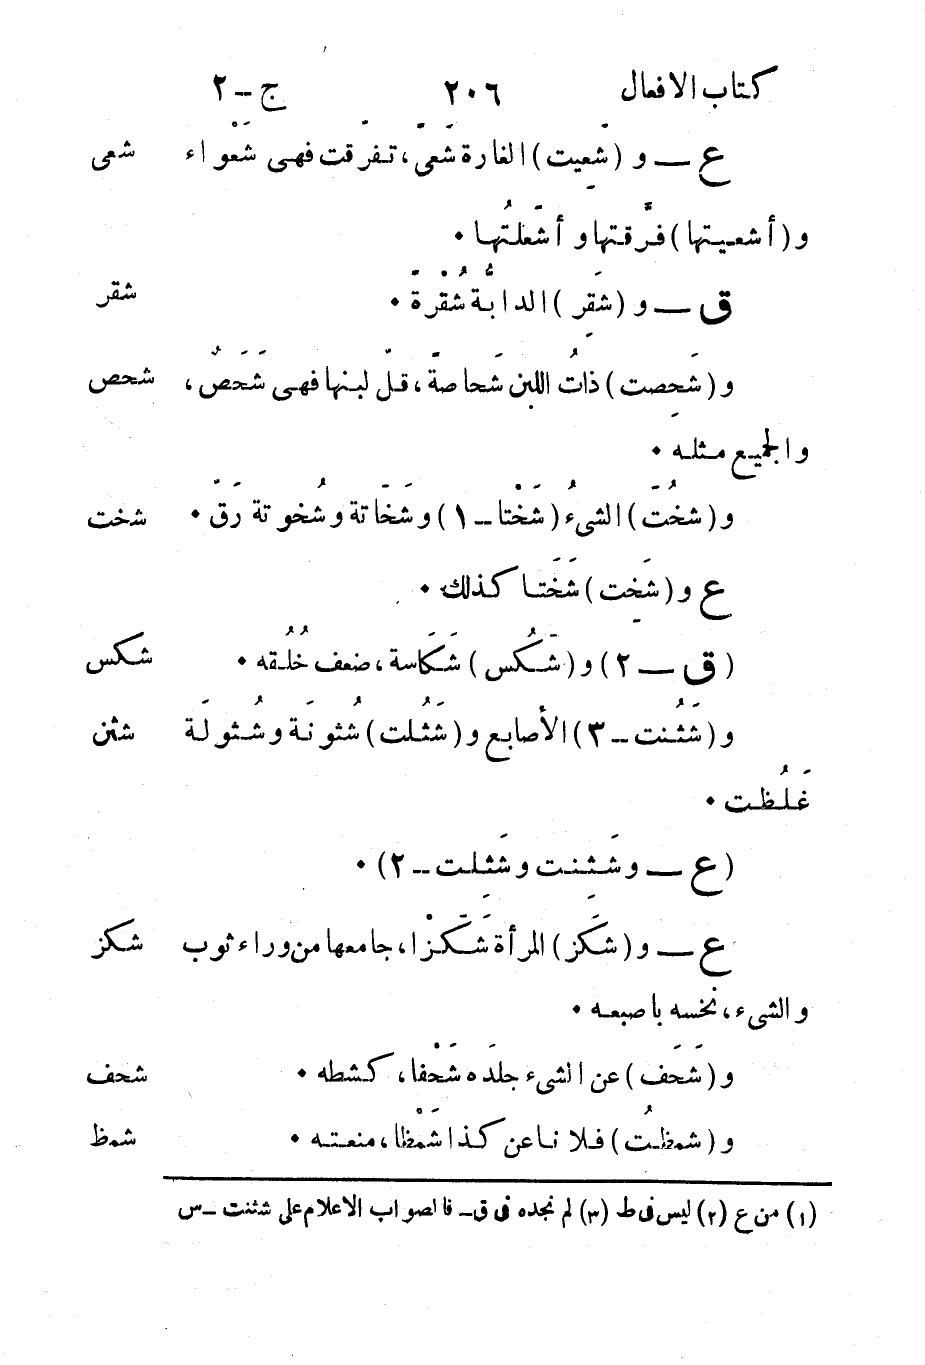 كتاب الافعال ٢٠٦ ج – ٢
ع — و (شَعِيت) الغارة شَعًى، تفرّقت فهى شَعْواء شعى
و (أشعيتها) فرّقتها و أشعَلتُها •
ق — و (شَقِر) الدابةُ شُقْرةً • شقر
و (شَحِصت) ذاتُ اللبن شَحاصةً، قلّ لبنها فهى شَحَصٌ، شحص
والجميع مثله •
و (شخُتَ) الشىءُ (شَخْتا – ١) و شَخَاتة و شُخوتة رَقّ • شخت
ع و (شَخِت) شَخَتا كذلك •
(ق — ٢) و (شَكُس) شَكَاسة، ضعف خُلُقه • شكس
و (شَثُنت – ٣) الأصابع و (شَثُلت) شُثونَة و شُثولَة شثن
غَلُظت •
(ع — و شَثِنت و شَثِلت – ٢) •
ع — و (شكَز) المرأة شَكْزا، جامعها من وراء ثوب شكز
والشىء، نخسه باصبعه •
و (شَحَف) عن الشىء جلدَه شَحْفا، كشطه • شحف
و (شمظتُ) فلانا عن كذا شَمْظا، منعته • شمظ
(١) من ع (٢) ليس فى ط (٣) لم نجده فى ق – فالصواب الاعلام على شثنت – س